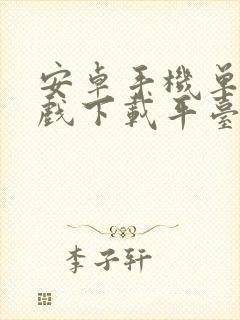 安卓手機單
戲下載平臺
李子軒